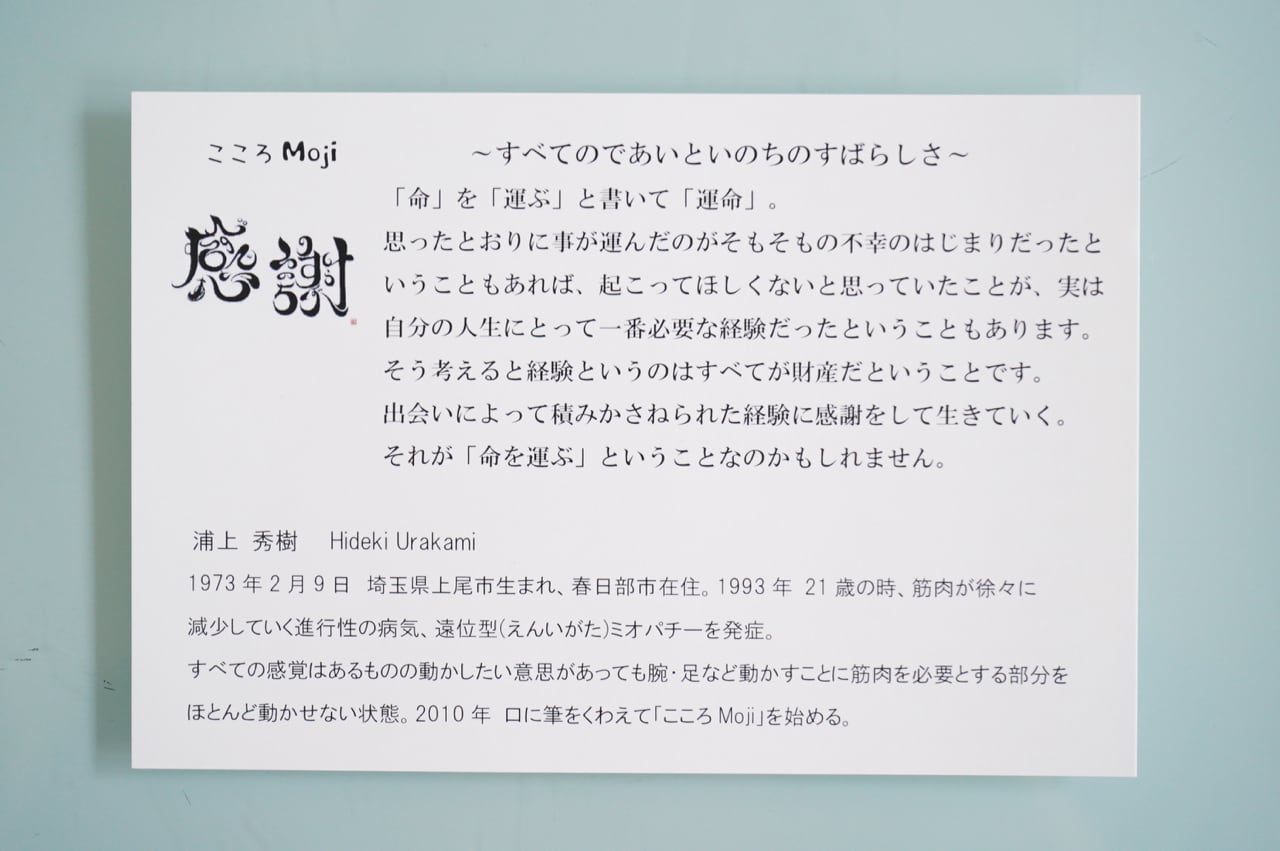 こころMoji
～すべてのであいといのちのすばらしさ～
感謝
「命」を「運ぶ」と書いて「運命」。
思ったとおりに事が運んだのがそもそもの不幸のはじまりだったと
いうこともあれば、起こってほしくないと思っていたことが、実は
自分の人生にとって一番必要な経験だったということもあります。
そう考えると経験というのはすべてが財産だということです。
出会いによって積みかさねられた経験に感謝をして生きていく。
それが「命を運ぶ」ということなのかもしれません。
浦上 秀樹 Hideki Urakami
1973年2月9日 埼玉県上尾市生まれ、春日部市在住。1993年 21歳の時、筋肉が徐々に
減少していく進行性の病気、遠位型(えんいがた)ミオパチーを発症。
すべての感覚はあるものの動かしたい意思があっても腕・足など動かすことに筋肉を必要とする部分を
ほとんど動かせない状態。2010年 口に筆をくわえて「こころMoji」を始める。